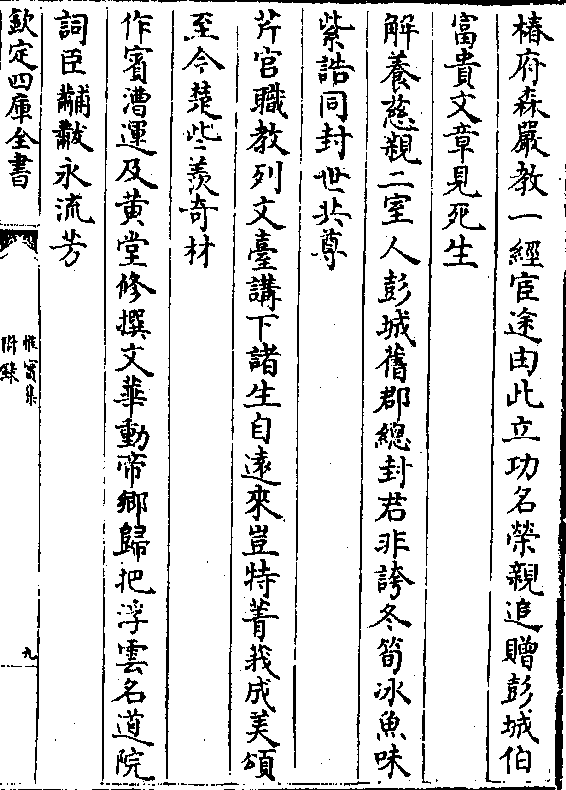 椿府森嚴教一經宦途由此立功名榮親追贈彭城伯
富貴文章見死生
解養慈親二室人彭城舊郡總封君非誇冬筍冰魚味
紫誥同封世共尊
芹宮職教列文臺講下諸生自遠來豈特菁莪成美頌
至今楚些羨奇材
作賓漕運及黄堂修撰文華動帝鄉歸把浮雲名道院
詞臣黼黻永流芳
欽定四庫全書
惟實集
附錄
九